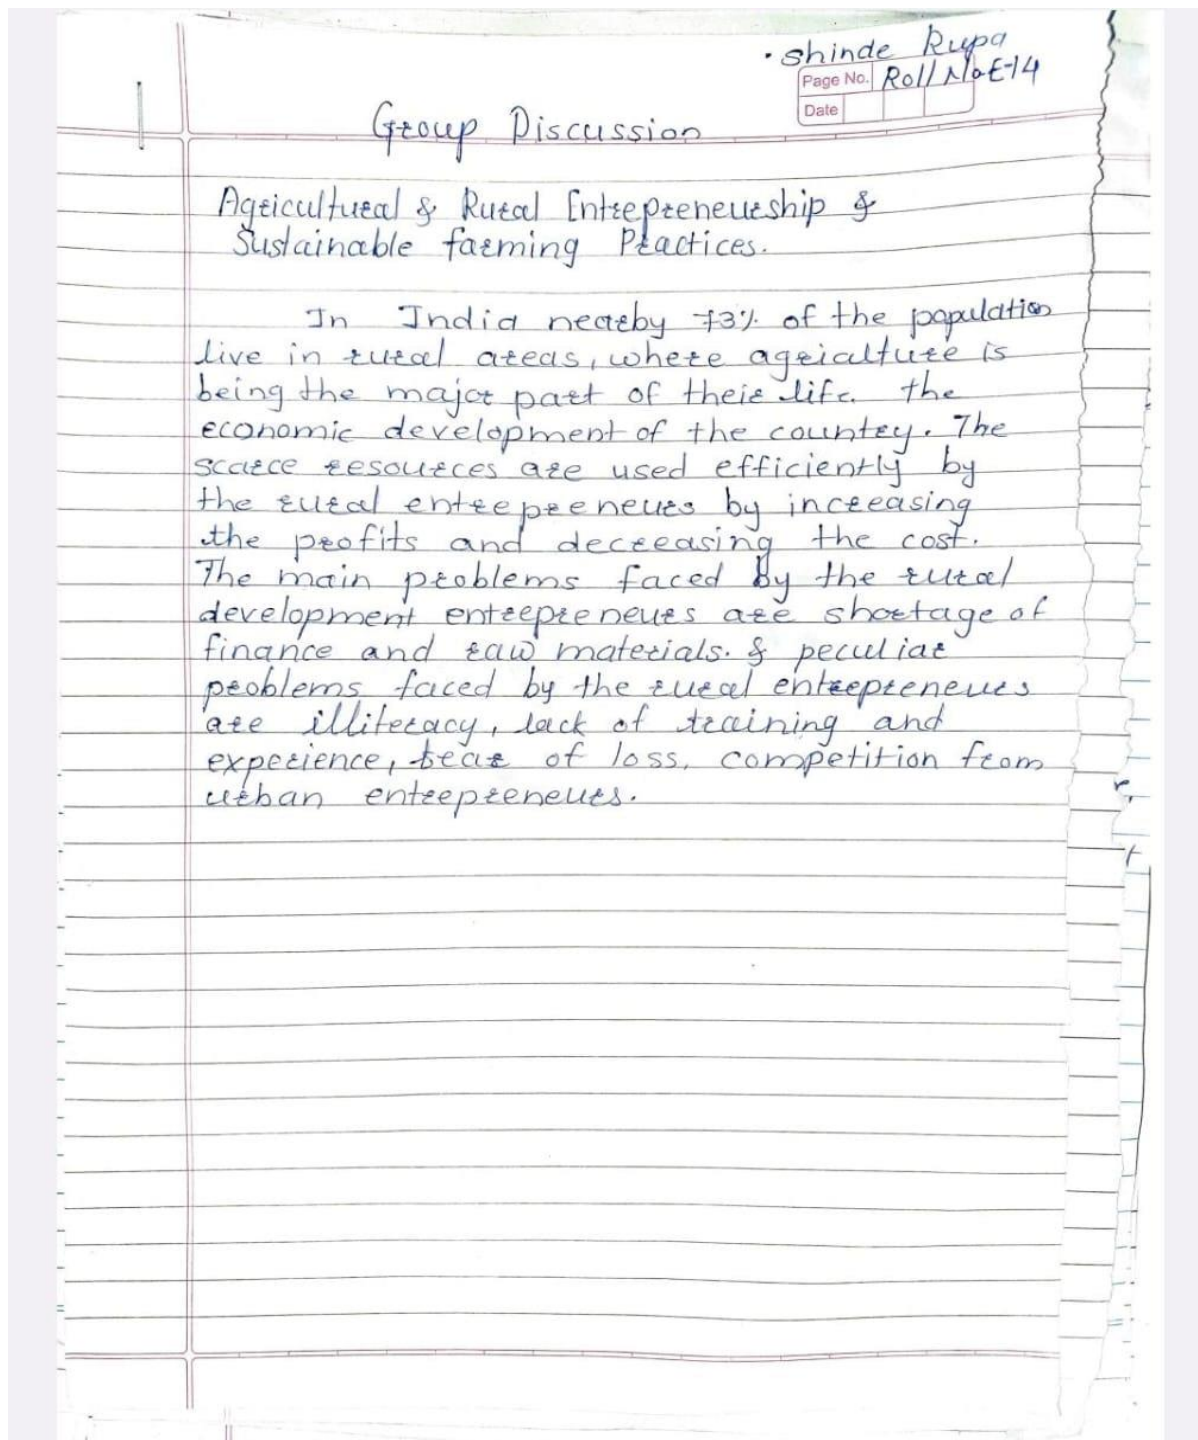 • Shinde Rupa
Page No. Roll No E-14
Date
Group Discussion
Agricultural & Rural Entrepreneurship &
Sustainable farming Practices.
In India nearby 73% of the population
live in rural areas, where agrialture is
being the major part of their life. the
economic development of the country. The
scarce resources are used efficiently by
the rural entrepreneurs by increasing
the profits and decreasing the cost.
The main problems faced by the rural
development entrepreneurs are shortage of
finance and raw materials. & peculiar
problems faced by the rural entrepreneurs
are illiteracy, lack of training and
experience, fear of loss, competition from
urban entrepreneurs.